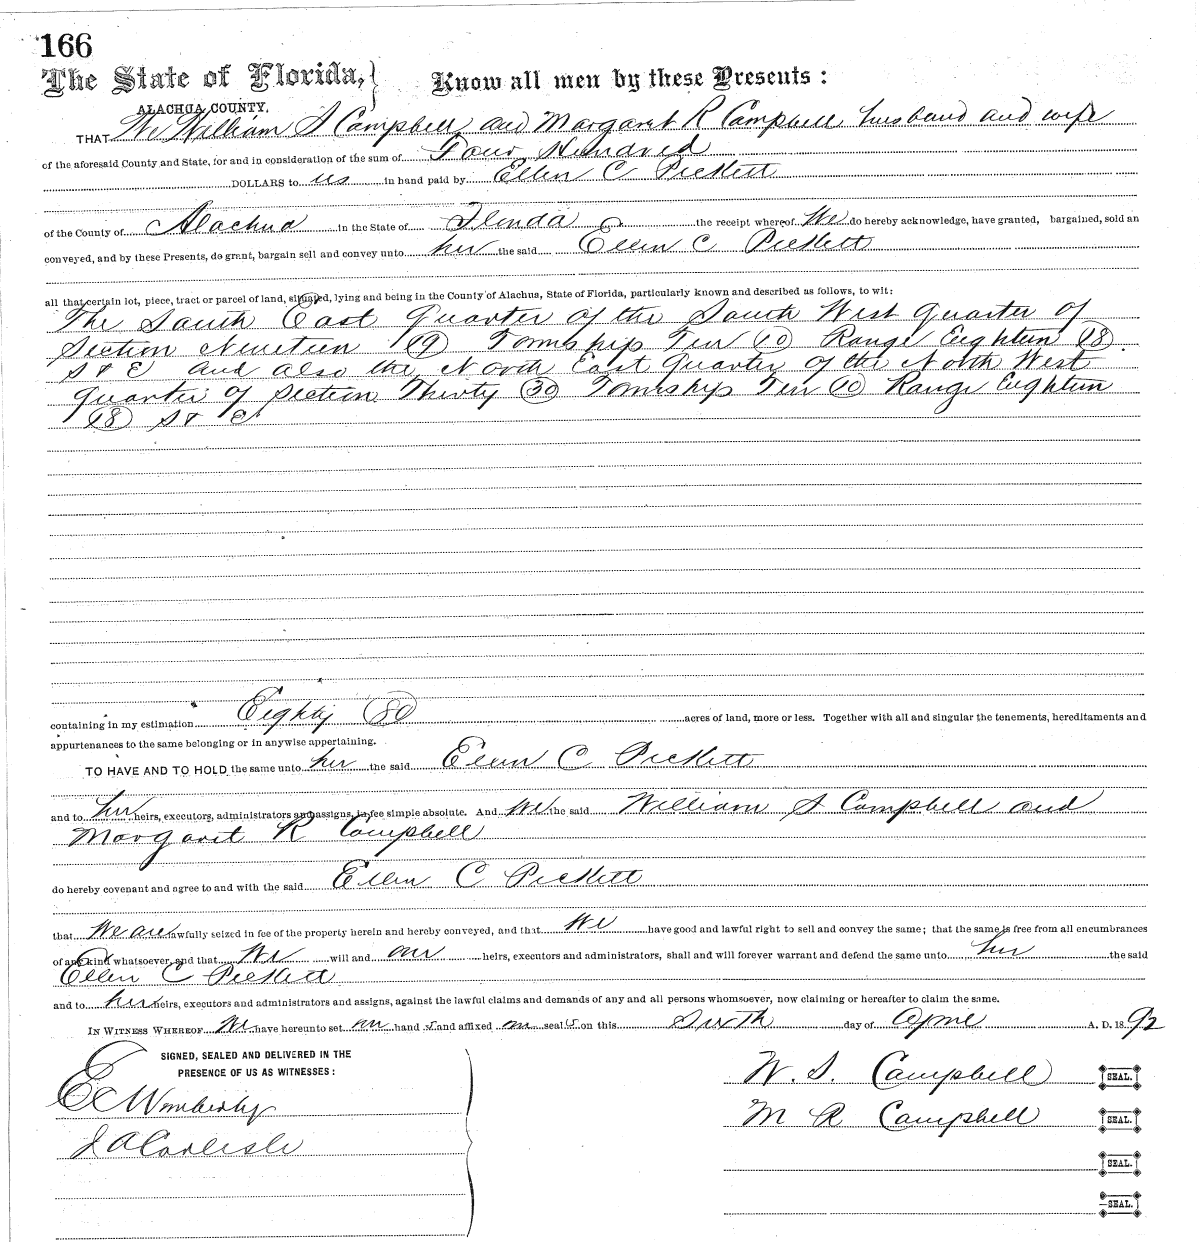 166
The State of Florida, } Know all men by these Presents :
ALACHUA COUNTY.
THAT We William S Campbell and Margaret R Campbell husband and wife
of the aforesaid County and State, for and in consideration of the sum of Four Hundred
DOLLARS to us in hand paid by Ellen C Pickett
of the County of Alachua in the State of Florida the receipt whereof We do hereby acknowledge, have granted, bargained, sold an
conveyed, and by these Presents, do grant, bargain sell and convey unto her the said Ellen C Pickett
all that certain lot, piece, tract or parcel of land, situated, lying and being in the County of Alachua, State of Florida, particularly known and described as follows, to wit:
The South East Quarter of the South West Quarter of
Section Nineteen (19) Township Ten (10) Range Eighteen (18)
S & E and also the North East Quarter of the North West
Quarter of Section Thirty (30) Township Ten (10) Range Eighteen
(18) S & E
containing in my estimation Eighty (80) acres of land, more or less. Together with all and singular the tenements, hereditaments and
appurtenances to the same belonging or in anywise appertaining.
TO HAVE AND TO HOLD the same unto her the said Ellen C Pickett
and to her heirs, executors, administrators and assigns, in fee simple absolute. And We the said William S Campbell and
Margaret R Campbell
do hereby covenant and agree to and with the said Ellen C Pickett
that We are lawfully seized in fee of the property herein and hereby conveyed, and that We have good and lawful right to sell and convey the same; that the same is free from all encumbrances
of any kind whatsoever, and that We will and our heirs, executors and administrators, shall and will forever warrant and defend the same unto her the said
Ellen C Pickett
and to her heirs, executors and administrators and assigns, against the lawful claims and demands of any and all persons whomsoever, now claiming or hereafter to claim the same.
IN WITNESS WHEREOF We have hereunto set our hand s and affixed our seal s on this Sixth day of April A. D. 1892
SIGNED, SEALED AND DELIVERED IN THE
PRESENCE OF US AS WITNESSES :
W. S. Campbell SEAL.
E C Wimberly
M R Campbell SEAL.
J A Carlisle
SEAL.
SEAL.